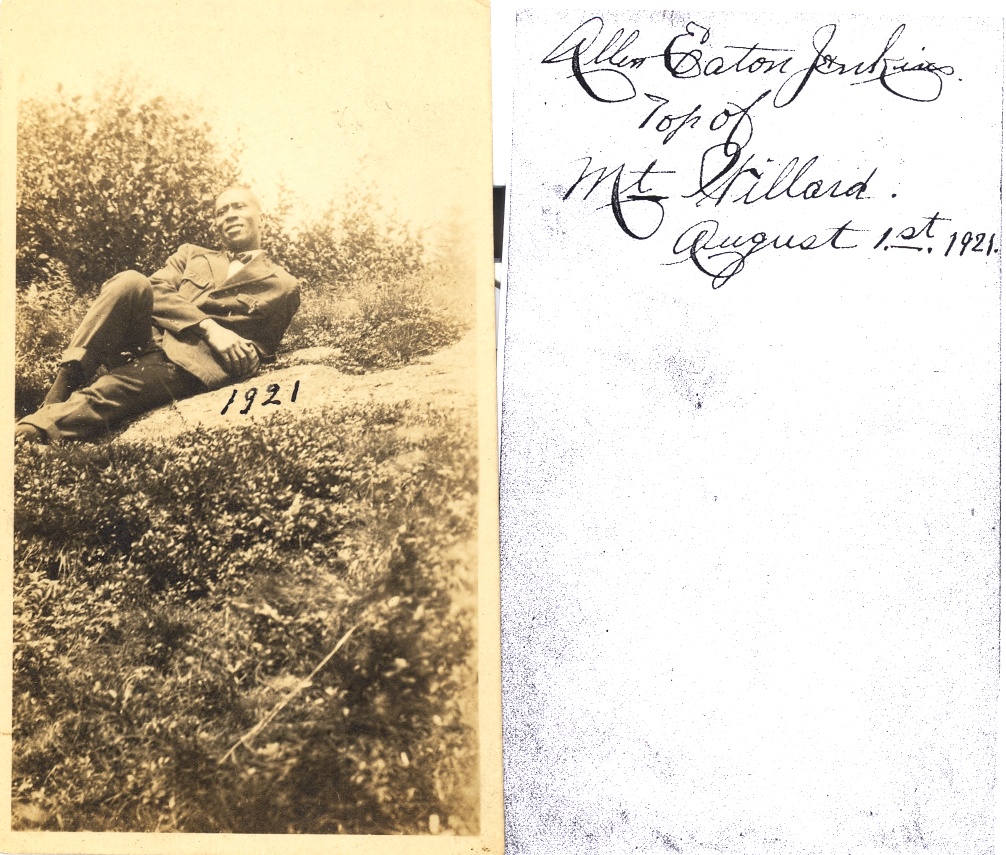 1921
Allen Eaton Jenkins.
Top of
Mt Willard.
August 1.st. 1921.